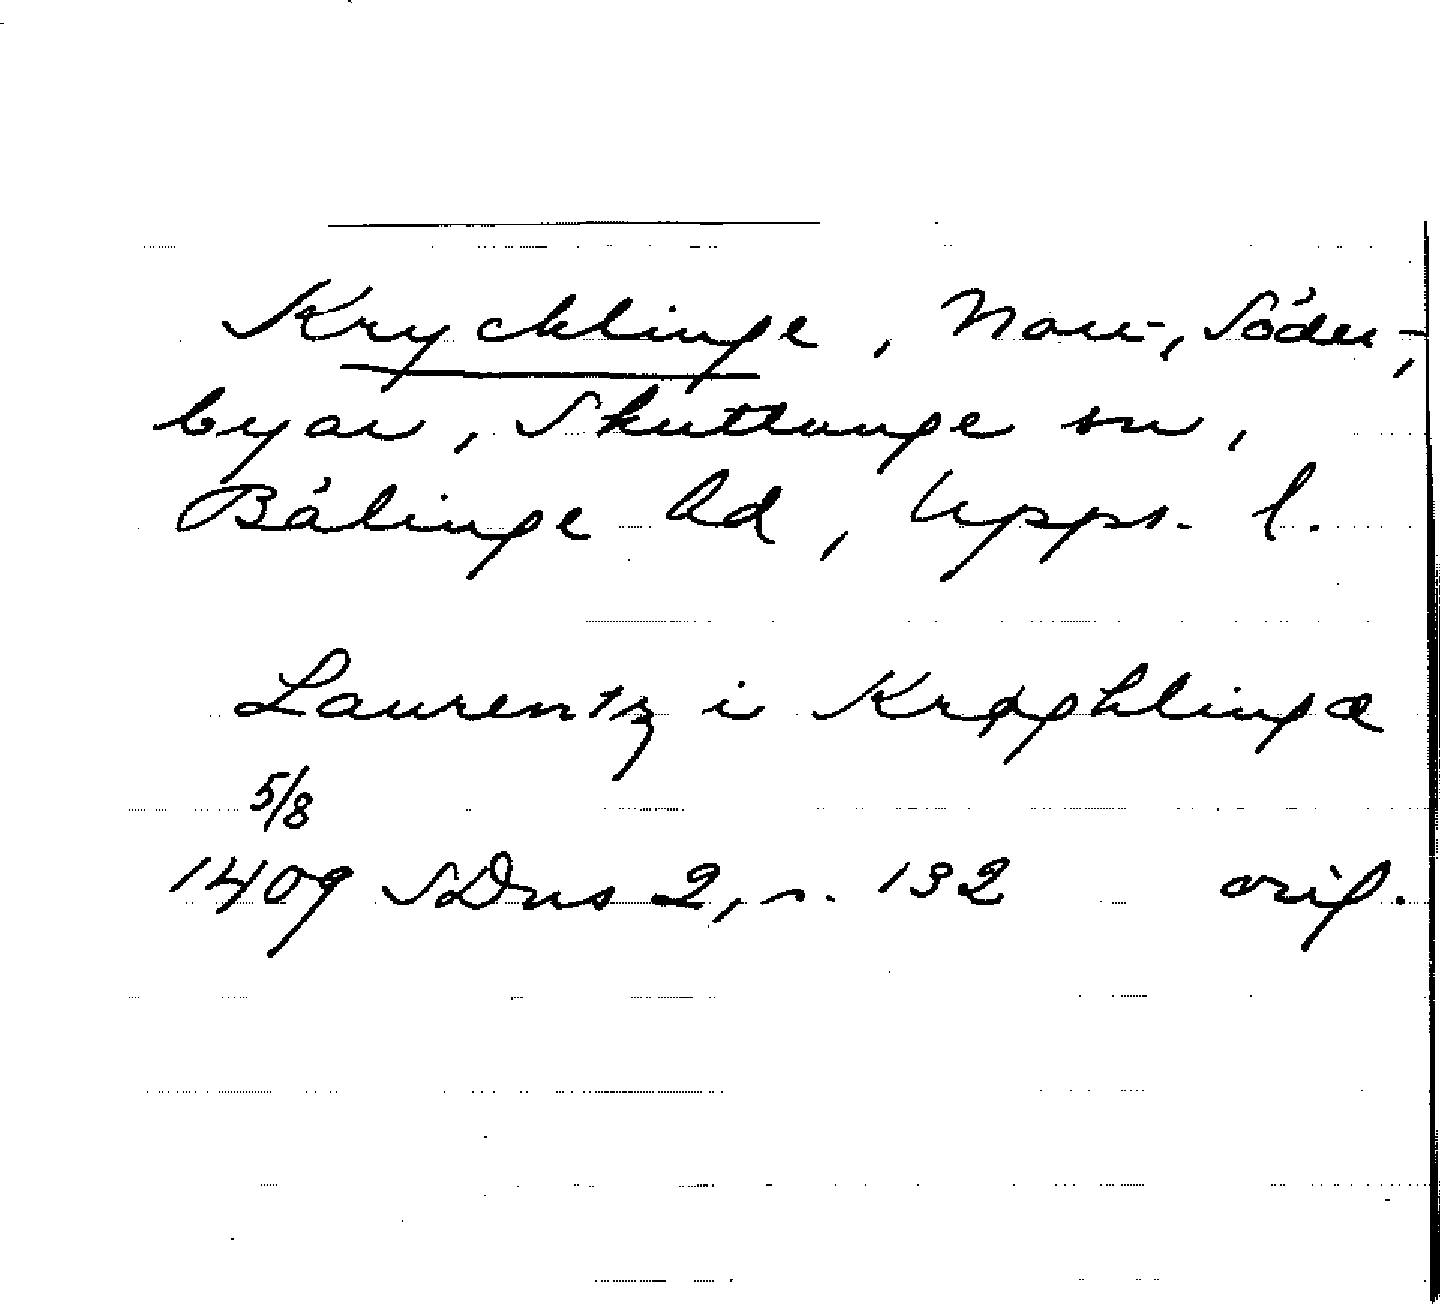 Krycklinge, Norr-, Söder-,
byar, Skuttunge sn,
Bälinge hd, Upps. l.
Laurentz i Krøghlingæ
5/8
1409 SDns 2, s. 132 orig.